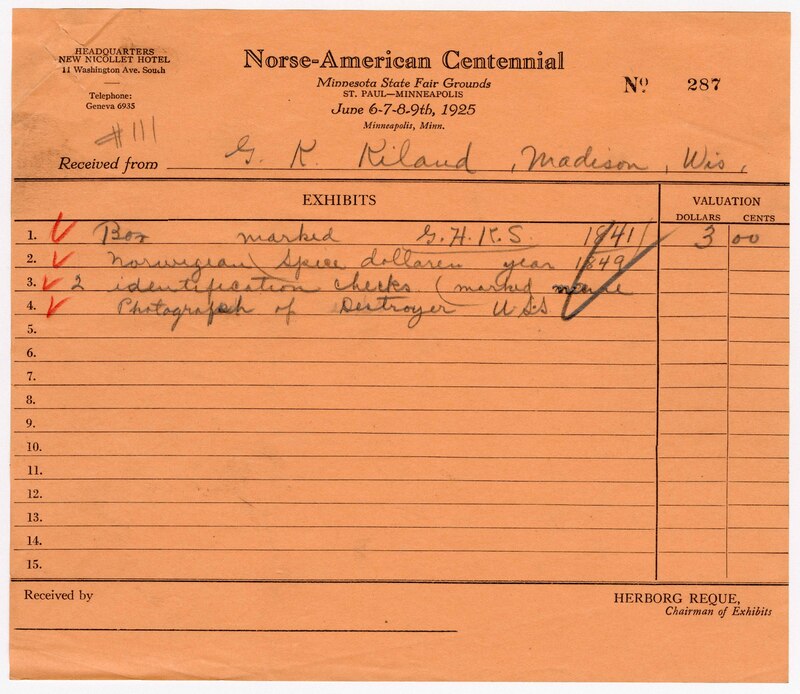 HEADQUARTERS
NEW NICOLLET HOTEL
11 Washington Ave. South
Telephone:
Geneva 6935
Norse-American Centennial
Minnesota State Fair Grounds
ST. PAUL—MINNEAPOLIS
June 6-7-8-9th, 1925
Minneapolis, Minn.
Nº 287
#111
Received from G. K. Kiland, Madison, Wis.
EXHIBITS
VALUATION
DOLLARS CENTS
1. Box marked G.H.K.S. 1841 3 00
2. Norwegian Specie dollaren year 1849
3. 2 identification checks (marked
4. Photograph of Destroyer U.S.S
5.
6.
7.
8.
9.
10.
11.
12.
13.
14.
15.
Received by
HERBORG REQUE,
Chairman of Exhibits